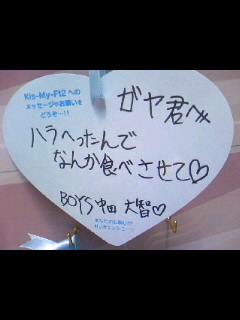 Kis-My-Ft2 への
メッセージやお願いを
どうぞ…!!
ガヤ君へ
ハラへったんで
なんか食べさせて♡
BOYS 中田 大智♡